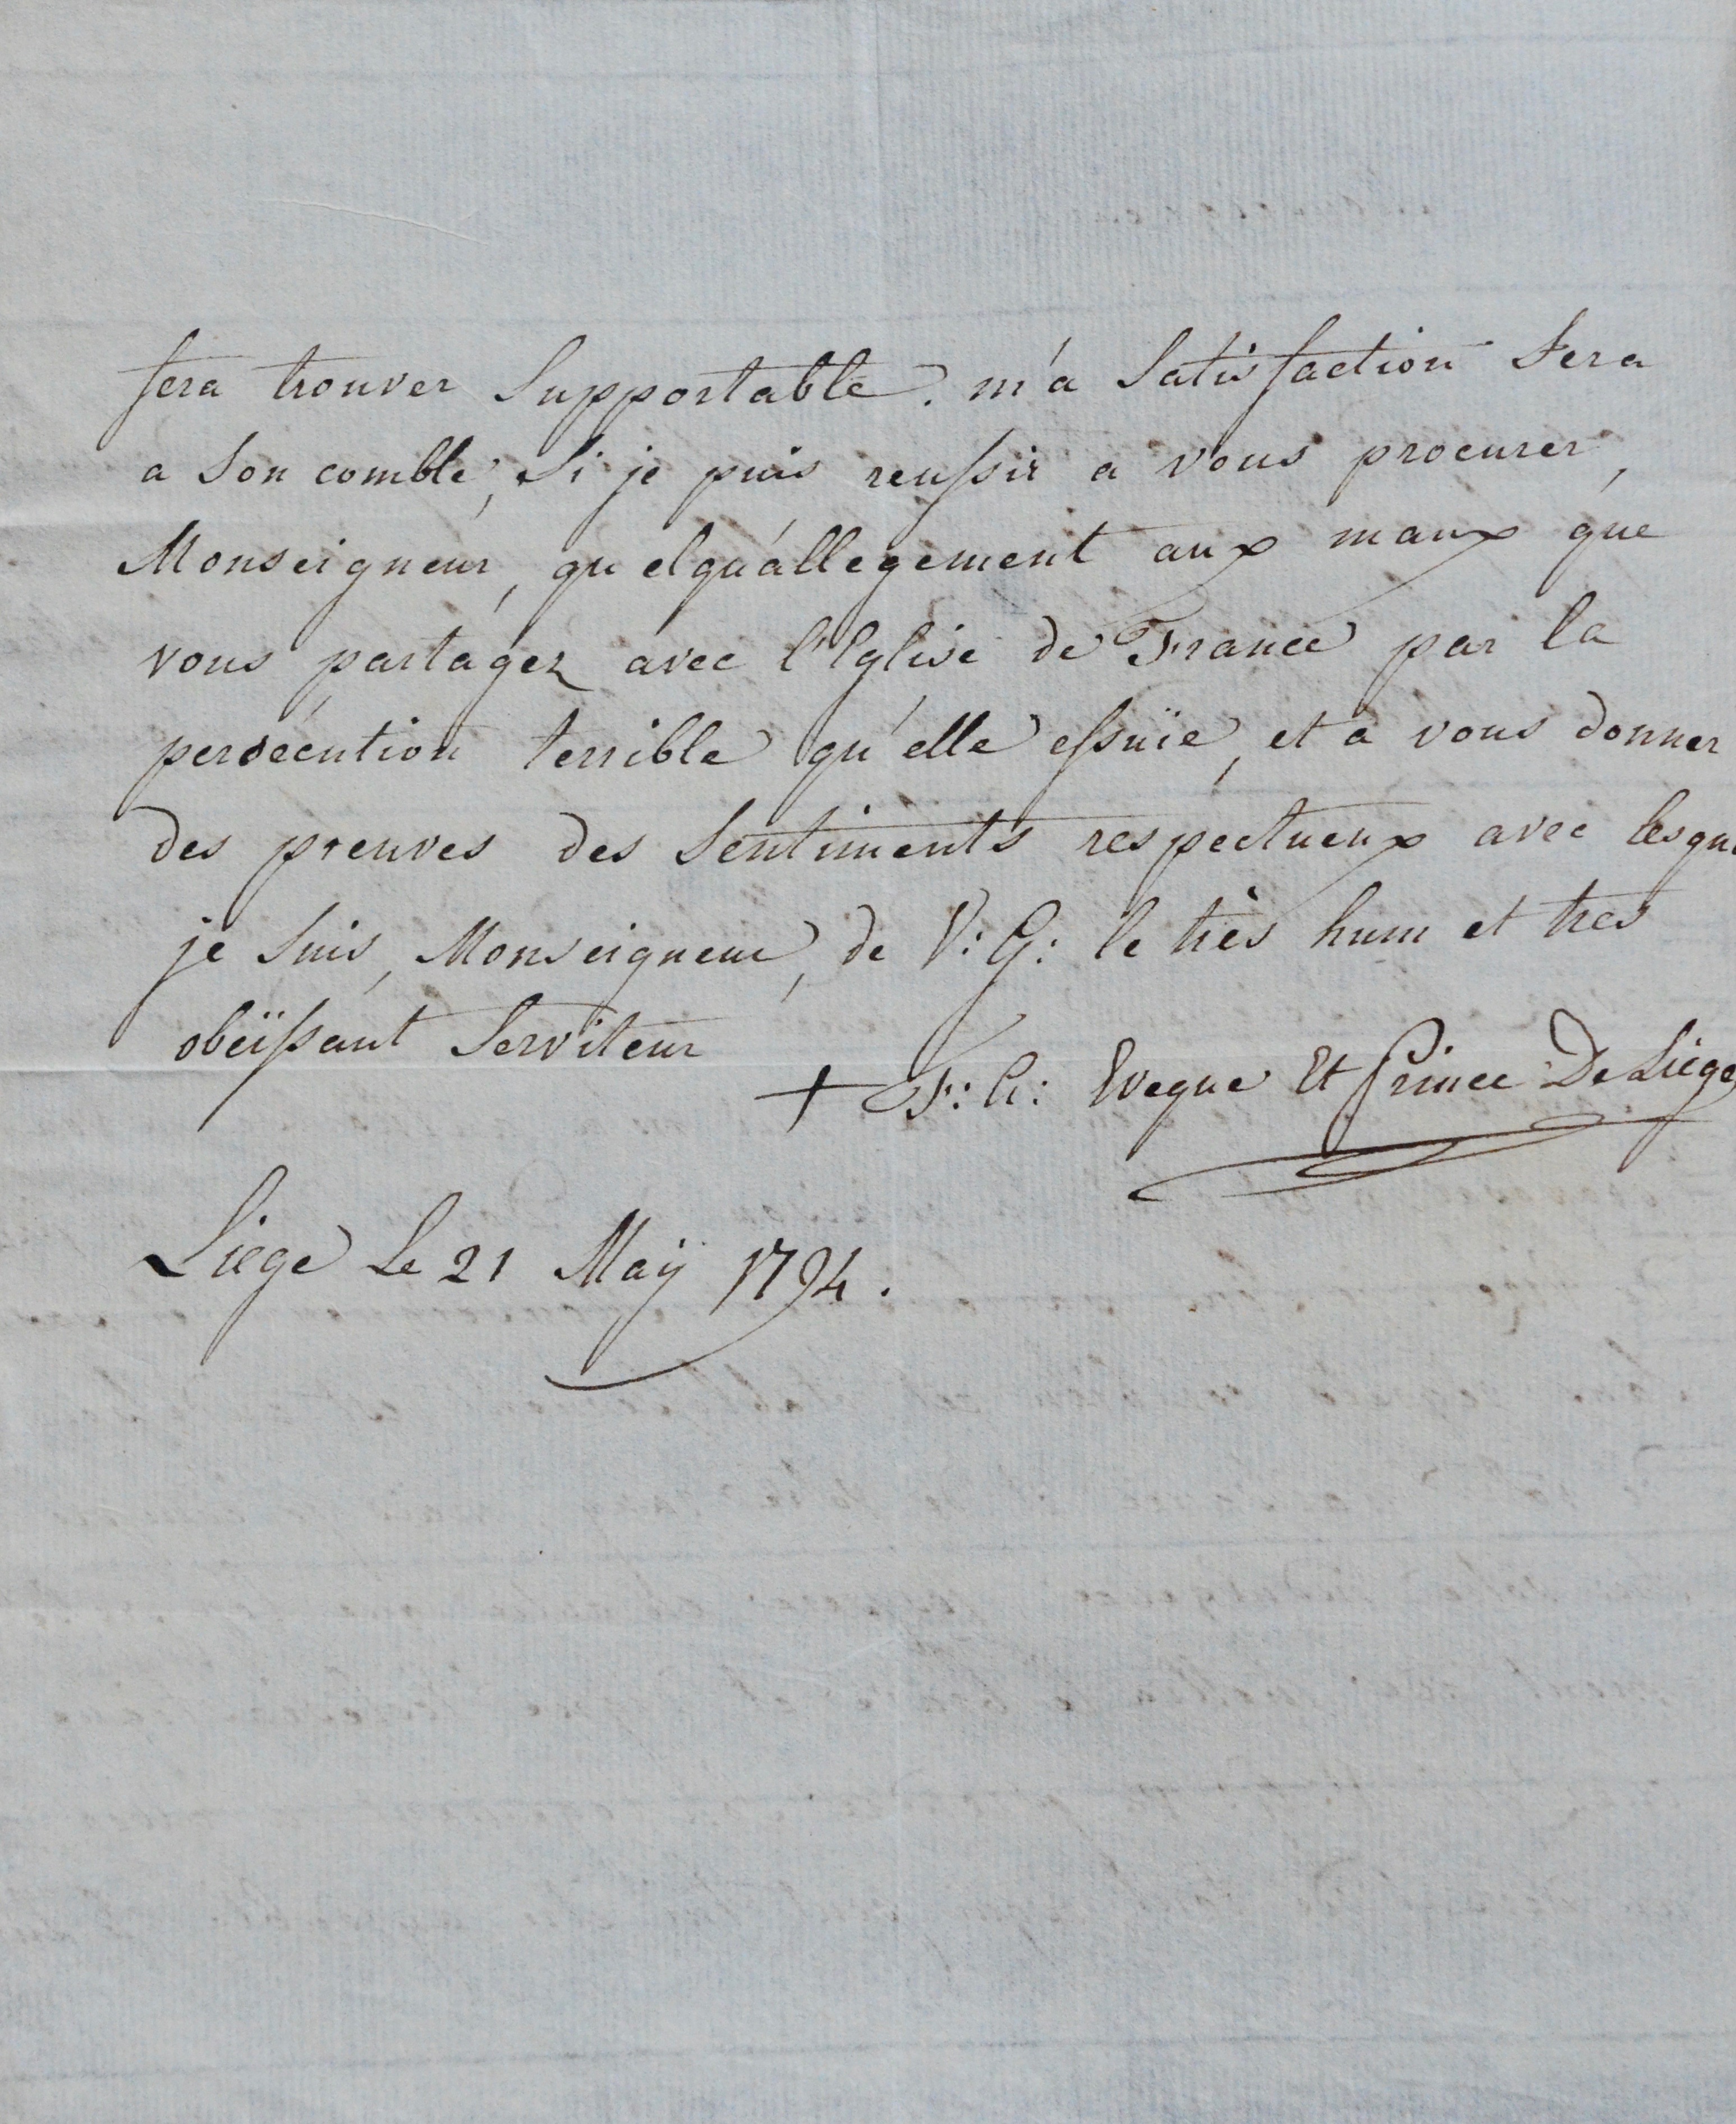 fera trouver Supportable. m'a Satisfaction Sera
a Son comble, Si je puis reussir a vous procurer,
Monseigneur, quelqu'allegement aux maux que
vous partagez avec l'Eglise de France par la
persécution terrible qu'elle essuïe, et a vous donner
des preuves des Sentiments respectueux avec lesqu
je Suis, Monseigneur, de V: G: le très hum et tres
obeïssant Serviteur
+ F: A: Eveque Et Prince De Liége
Liége Le 21 Maÿ 1794.